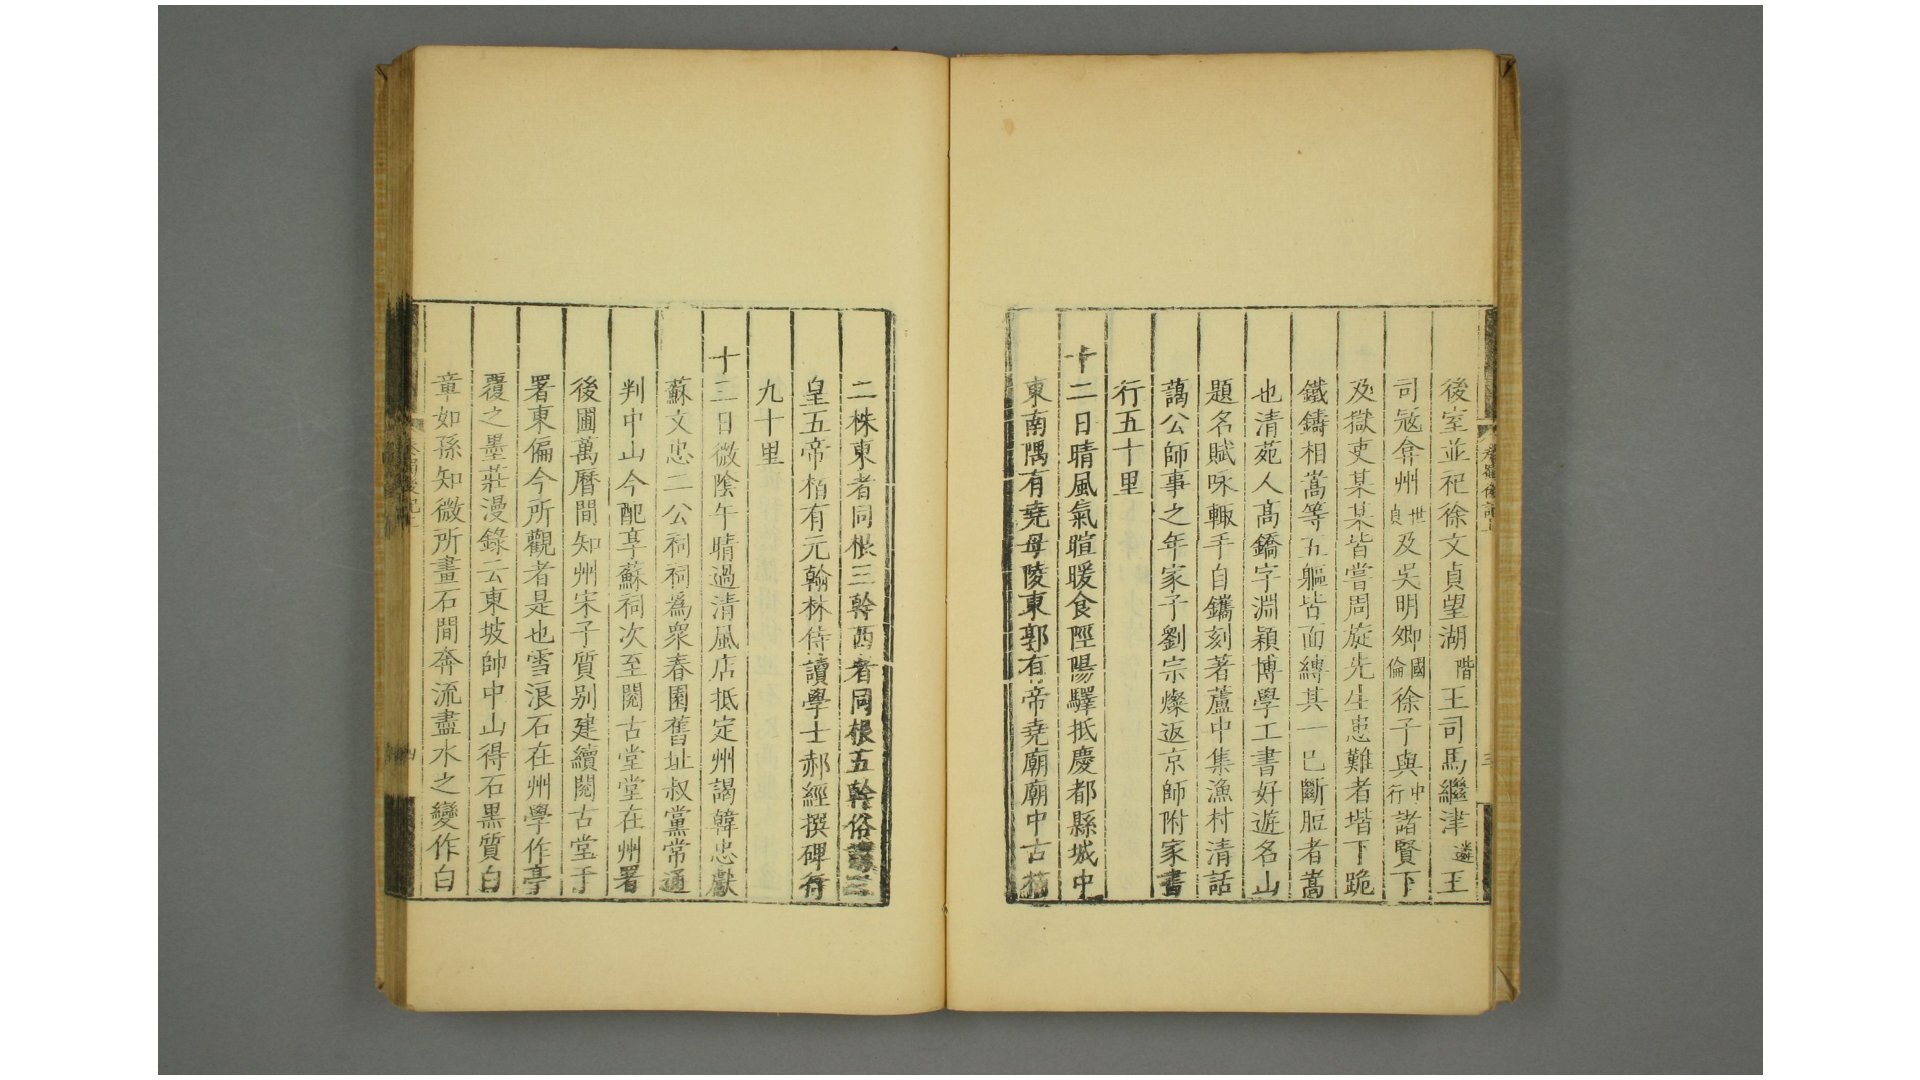 後室並祀徐文貞望湖階王司馬繼津遴王
司冦弇州世貞及吳明卿國倫徐子與中行諸賢下
及獄吏某某皆嘗周旋先生患難者堦下跪
鐵鑄相嵩等五軀皆面縛其一已斷脰者嵩
也清苑人髙鐈字淵穎博學工書好遊名山
題名賦咏輙手自鐫刻著蘆中集漁村清話
藹公師事之年家子劉宗燦返京師附家書
行五十里
十二日晴風氣暄暖食陘陽驛抵慶都縣城中
東南隅有堯母陵東郭有帝堯廟廟中古栢
二株東者同根三幹西者同根五幹俗謂三
皇五帝栢有元翰林侍讀學士郝經撰碑行
九十里
十三日微隂午晴過清風店抵定州謁韓忠獻
蘇文忠二公祠祠爲衆春園舊址叔黨常通
判中山今配享蘇祠次至閱古堂堂在州署
後圃萬曆間知州宋子質别建續閱古堂于
署東偏今所觀者是也雪浪石在州學作亭
覆之墨莊漫錄云東坡帥中山得石黒質白
章如孫知微所畫石間奔流盡水之變作白